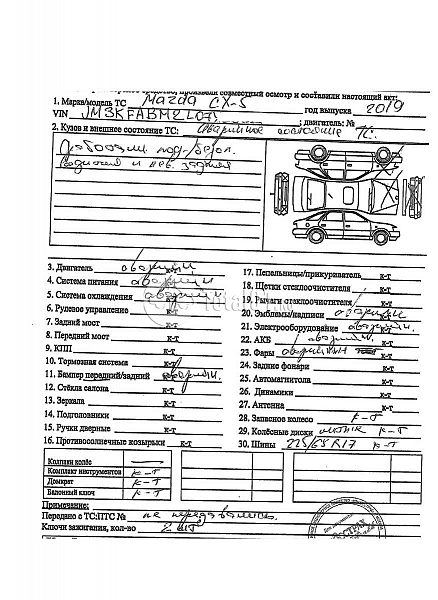 произвели совместный осмотр и составили настоящий акт:
1. Марка/модель ТС Mazda CX-5 год выпуска 2019
VIN JM3KFABM2L07 ; двигатель: №
2. Кузов и внешнее состояние ТС: Аварийное состояние ТС.
задняя
3. Двигатель аварийн
4. Система питания аварийн
5. Система охлаждения аварийн
6. Рулевое управление к-т
7. Задний мост к-т
8. Передний мост к-т
9. КПП к-т
10. Тормозная система к-т
11. Бампер передний/задний аварийн.
12. Стёкла салона к-т
13. Зеркала к-т
14. Подголовники к-т
15. Ручки дверные к-т
16. Противосолнечные козырьки к-т
17. Пепельницы/прикуриватель к-т
18. Щетки стеклоочистителя к-т
19. Рычаги стеклоочистителя к-т
20. Эмблемы/надписи аварийн
21. Электрооборудование аварийн.
22. АКБ аварийн.
23. Фары аварийн
24. Задние фонари к-т
25. Автомагнитола к-т
26. Динамики к-т
27. Антенна к-т
28. Запасное колесо к-т
29. Колёсные диски литые к-т
30. Шины 225/65 R17 к-т
Колпаки колёс
Комплект инструментов к-т
Домкрат к-т
Балонный ключ к-т
Примечание:
Передано с ТС:ПТС № не передавались
Ключи зажигания, кол-во 2 шт